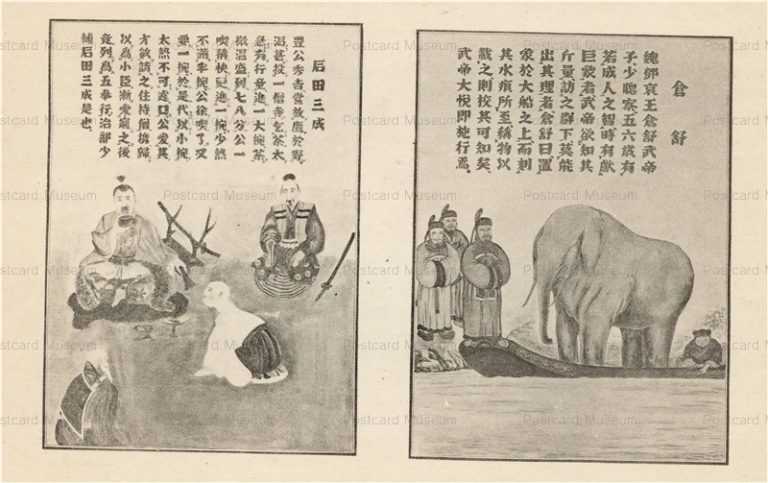 倉舒
魏鄧哀王倉舒武帝
子少聰察五六歲有
若成人之智時有獻
巨象者武帝欲知其
斤量訪之群下莫能
出其理者倉舒曰置
象於大船之上而刻
其水痕所至稱物以
載之則校其可知矣。
武帝大悅即施行焉。
石田三成
豐公秀吉嘗放鷹於野
渴甚投一僧寺乞茶太
急 行童進一大椀茶
微溫盛 七八分公一
喫稱快更進一椀少熱
不滿半椀公徐喫了又
要一椀於是代以小椀
太熱不可遽 公愛其
才敏請之住持 歸
以為小臣漸 之後
竟列為五奉行治部少
輔石田三成是也。
Postcard Museum